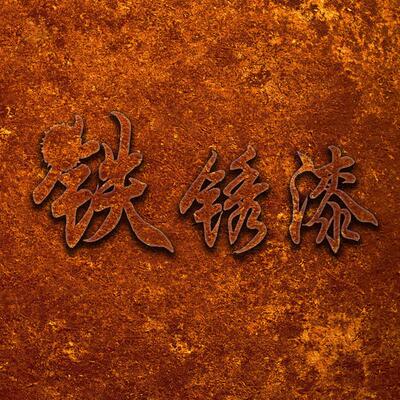 铁锈漆